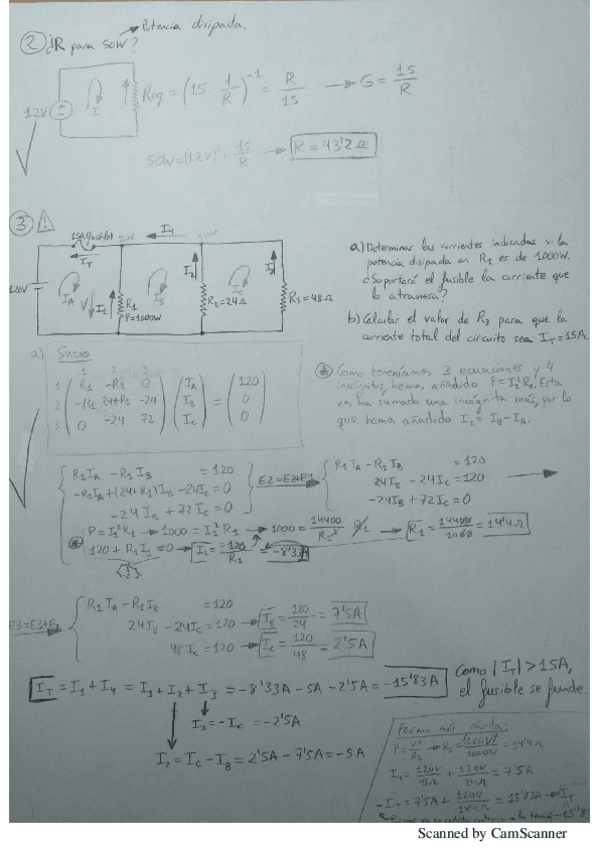 Potencia disipada.
② ¿R para 50W?
12V
I
Req = (15 · 1/R)^-1 = R/15 → G = 15/R
50W = (12V)² · 15/R → R = 43'2Ω
③
15A (fusible)
I4
IT
120V
IA
V
I1
R1
P=1000W
IB
I2
R2=24Ω
IC
R3=48Ω
a) Determinar las corrientes indicadas si la
potencia disipada en R1 es de 1000W.
¿Soportará el fusible la corriente que
lo atraviesa?
b) Calcular el valor de R3 para que la
corriente total del circuito sea IT=15A.
a) Sucio
1 2 3
1 R1 -R1 0 IA 120
2 -R1 24+R1 -24 IB = 0
3 0 -24 72 IC 0
Como teníamos 3 ecuaciones y 4
incógnitas, hemos añadido P=I1²R1. Esta
nos ha sumado una incógnita más, por lo
que hemos añadido I1 = IB - IA.
R1IA - R1IB = 120
-R1IA+(24+R1)IB - 24IC = 0
-24IB + 72IC = 0
E2=E2+E1
R1IA - R1IB = 120
24IB - 24IC = 120
-24IB + 72IC = 0
P=I1²R1 → 1000 = I1²R1 → 1000 = 14400/R1² R1 → R1 = 14400/1000 = 14'4Ω
120 + R1I1 = 0 → I1 = -120/R1 = -8'33A
E3=E3+E2
R1IA - R1IB = 120
24IB - 24IC = 120 → IB = 180/24 = 7'5A
48IC = 120 → IC = 120/48 = 2'5A
IT = I1 + I4 = I1 + I2 + I3 = -8'33A - 5A - 2'5A = -15'83A
Como |IT| > 15A,
el fusible se funde.
I3 = -IC = -2'5A
I2 = IC - IB = 2'5A - 7'5A = -5A
Forma más rápida:
P = V²/R1 → R1 = (120V)²/1000W = 14'4Ω
I4 = 120V/48Ω + 120V/24Ω = 7'5A
-IT = 7'5A + 120V/14'4Ω = 15'83A → IT
Scanned by CamScanner